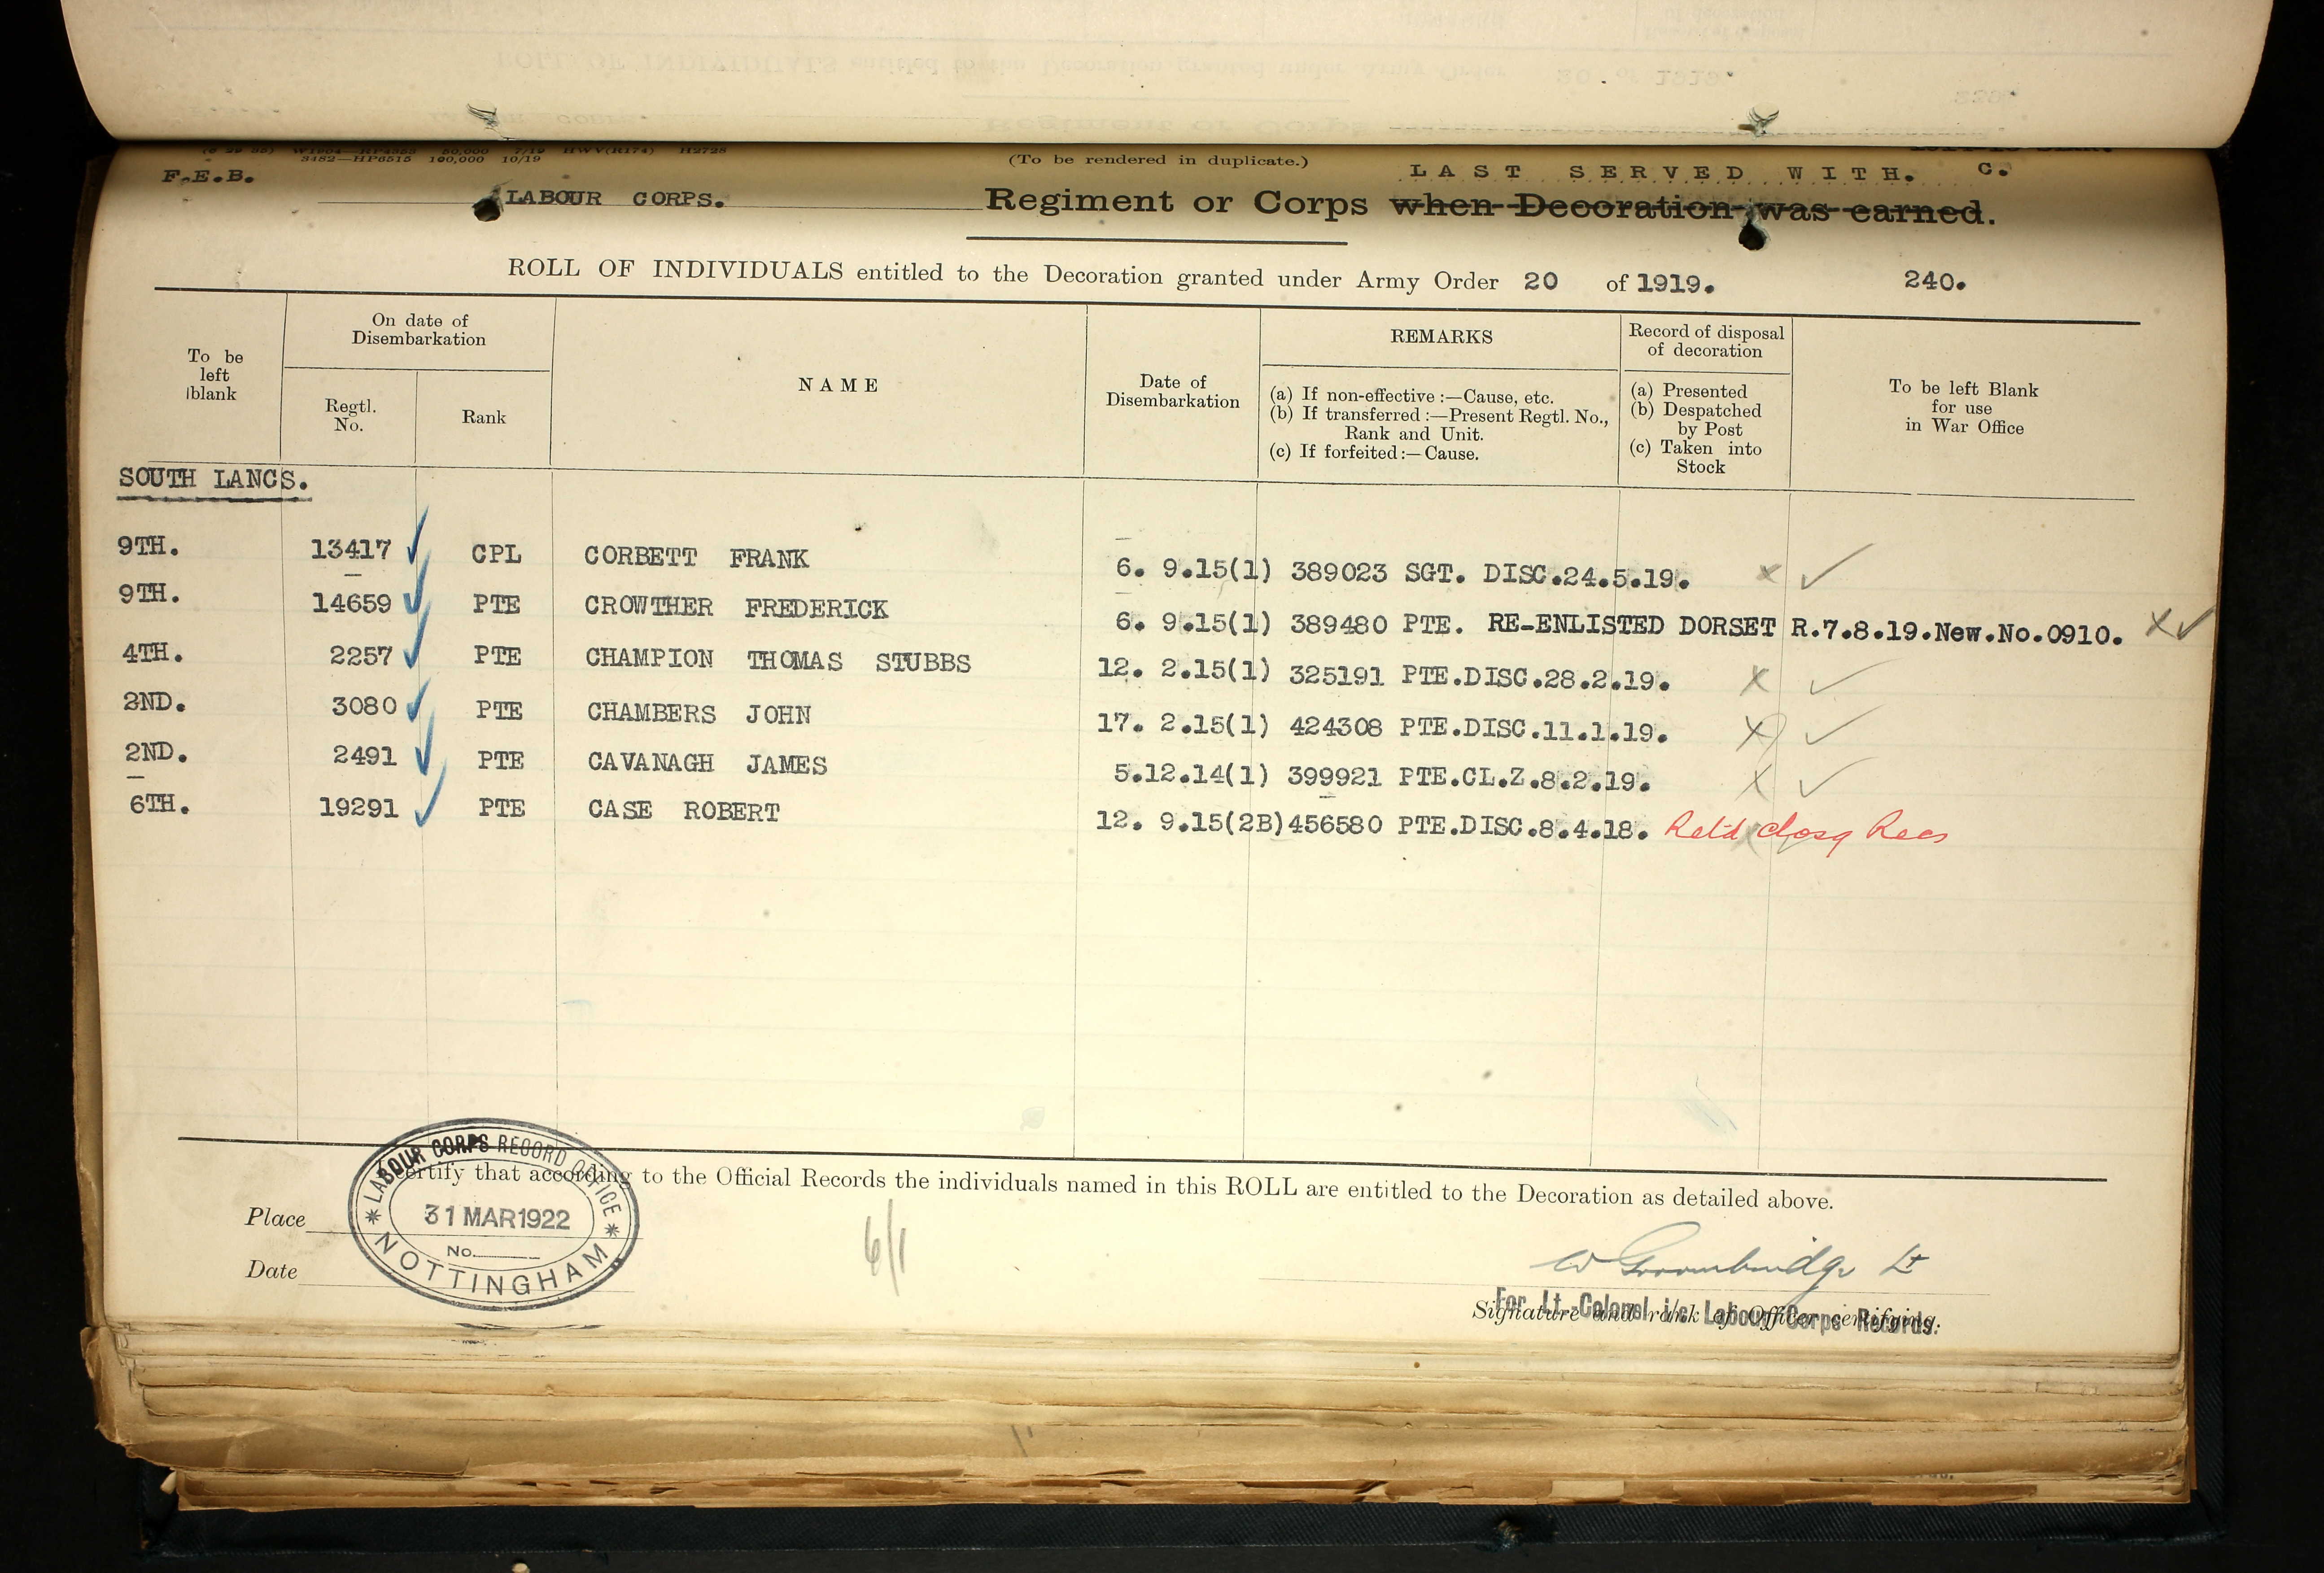 (6 29 55) W1904—RP4353 50,000 7/19 HWV(R174) H2728
3482—HP6515 100,000 10/19
(To be rendered in duplicate.)
F.E.B.
LAST SERVED WITH. C.
LABOUR CORPS. Regiment or Corps when Decoration was earned.
ROLL OF INDIVIDUALS entitled to the Decoration granted under Army Order 20 of 1919. 240.
To be left blank
On date of Disembarkation
Regtl. No.
Rank
NAME
Date of Disembarkation
REMARKS
(a) If non-effective :—Cause, etc.
(b) If transferred :—Present Regtl. No., Rank and Unit.
(c) If forfeited :—Cause.
Record of disposal of decoration
(a) Presented
(b) Despatched by Post
(c) Taken into Stock
To be left Blank for use in War Office
SOUTH LANCS.
9TH. 13417 CPL CORBETT FRANK 6. 9.15(1) 389023 SGT. DISC.24.5.19. x ✓
9TH. 14659 PTE CROWTHER FREDERICK 6. 9.15(1) 389480 PTE. RE-ENLISTED DORSET R.7.8.19.New.No.0910. x ✓
4TH. 2257 PTE CHAMPION THOMAS STUBBS 12. 2.15(1) 325191 PTE.DISC.28.2.19. x ✓
2ND. 3080 PTE CHAMBERS JOHN 17. 2.15(1) 424308 PTE.DISC.11.1.19. x ✓
2ND. 2491 PTE CAVANAGH JAMES 5.12.14(1) 399921 PTE.CL.Z.8.2.19. x ✓
6TH. 19291 PTE CASE ROBERT 12. 9.15(2B) 456580 PTE.DISC.8.4.18. Retd
certify that according to the Official Records the individuals named in this ROLL are entitled to the Decoration as detailed above.
LABOUR CORPS RECORD OFFICE
31 MAR 1922
No.
NOTTINGHAM
Place
Date
6/1
W Groombridge Lt
For Lt.-Colonel i/c Labour Corps Records.
Signature and rank of Officer certifying.